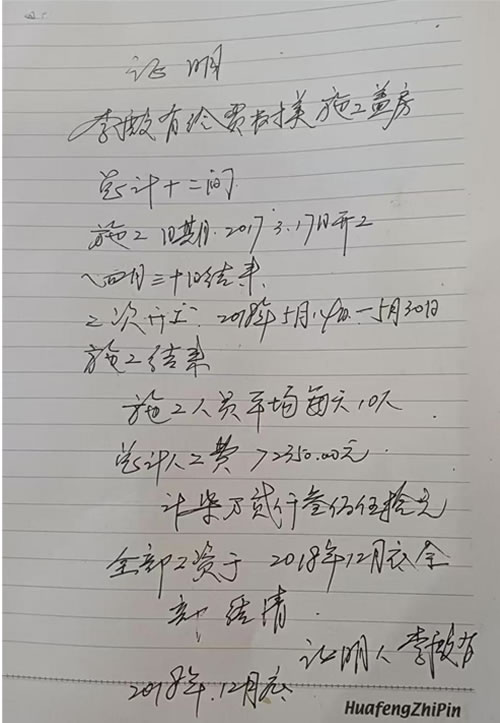 证明
李敄有给贾树美施工盖房
总计十二间
施工日期.2017.3.17日开工
~四月三十日结束.
二次开工:2018年5月14日—5月30日
施工结束
施工人员平均每天10人.
总计人工费72350.00元.
计柒万贰仟叁佰伍拾元
全部工资于2018年12月底全
部结清.
证明人李敄有
2018年.12月底
HuafengZhiPin